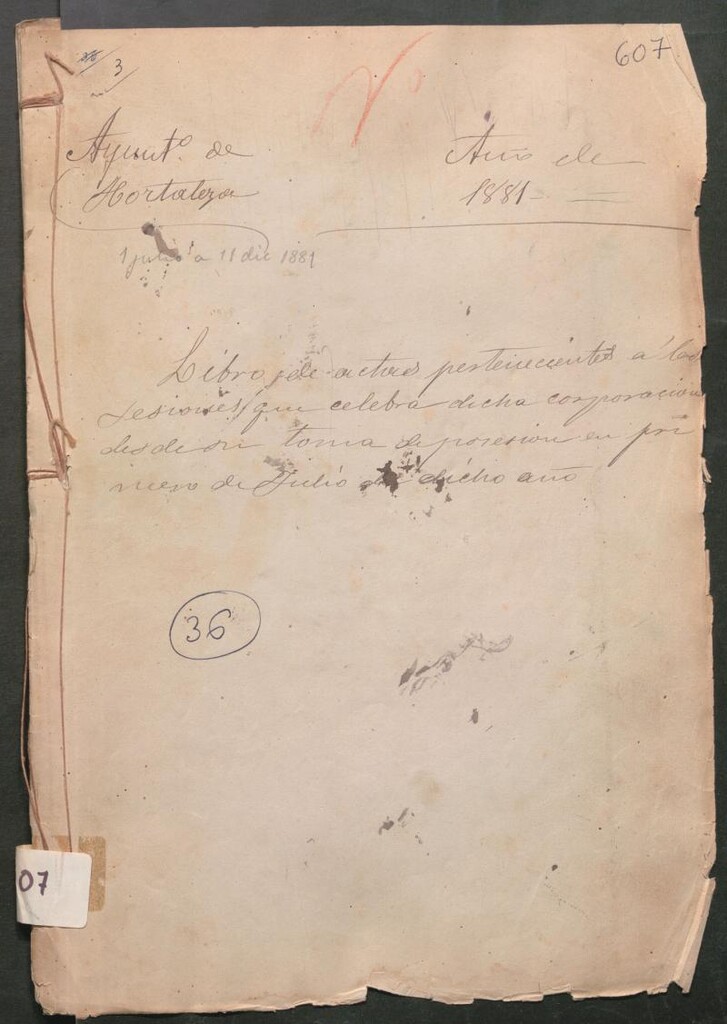 3
607
Nº
Ayunt.º de
Hortaleza
Año de
1881
1 julio a 11 dic 1881
Libro de actas pertenecientes á las
sesiones que celebra dicha corporacion
desde su toma de posesion en pri
mero de Julio de dicho año
36
07